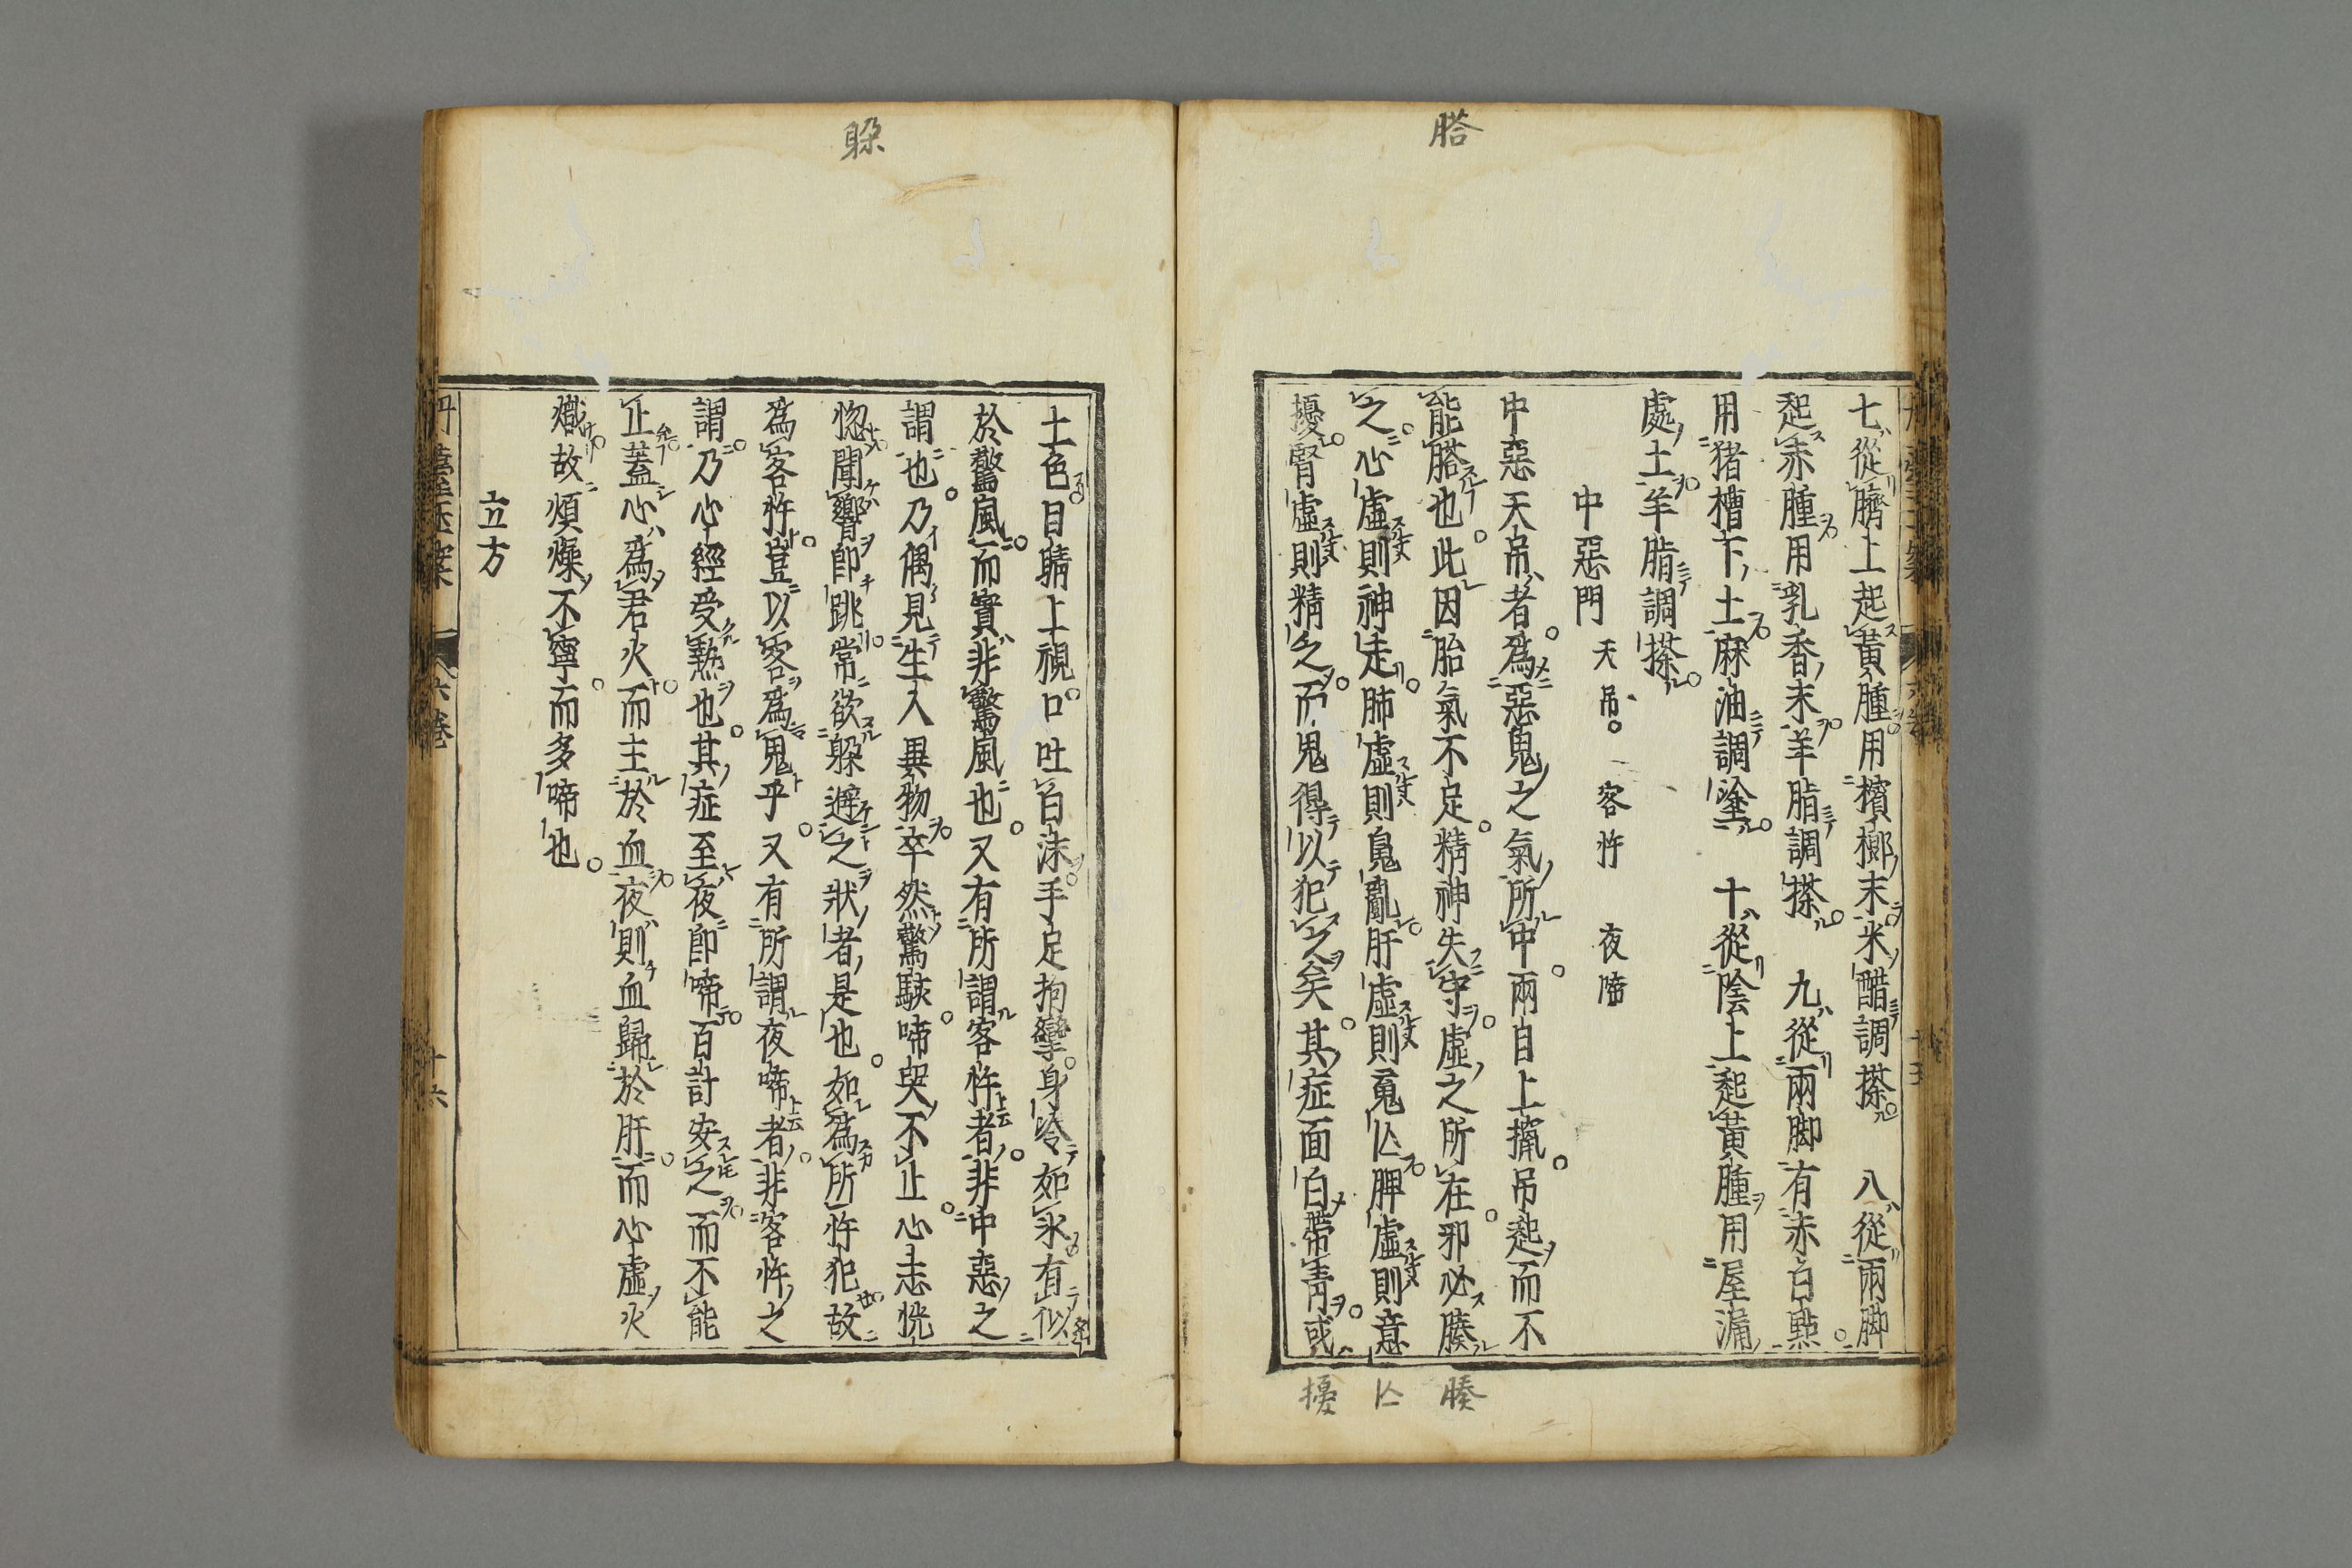 搭
七從臍上起黃腫用檳榔末米醋調搽 八從兩脚
起赤腫用乳香末羊脂調搽 九從兩脚有赤白點
用猪槽下土麻油調塗 十從陰上起黃腫用屋漏
處土羊脂調搽
中惡門 天吊 客忤 夜啼
中惡天吊者爲惡鬼之氣所中兩目上攛吊起而不
能搭也此因胎氣不足精神失守虛之所在邪必腠
之心虛則神走肺虛則魄亂肝虛則魂亾脾虛則意
擾腎虛則精乏而鬼得以犯之矣其症面白帶青或
腠
亾
擾
躱
土色目睛上視口吐白沫手足拘攣身冷如氷有似
於驚風而實非驚風也又有所謂客忤者非中惡之
謂也乃偶見生人異物卒然驚駭啼哭不止心志恍
惚聞響即跳常欲躱避之狀者是也如爲所忤犯故
爲客忤豈以客爲鬼乎又有所謂夜啼者非客忤之
謂乃心經受熱也其症至夜即啼百計安之而不能
止蓋心爲君火而主於血夜則血歸於肝而心虛火
熾故煩燥不寧而多啼也
立方
丹臺玉案
六卷
十六